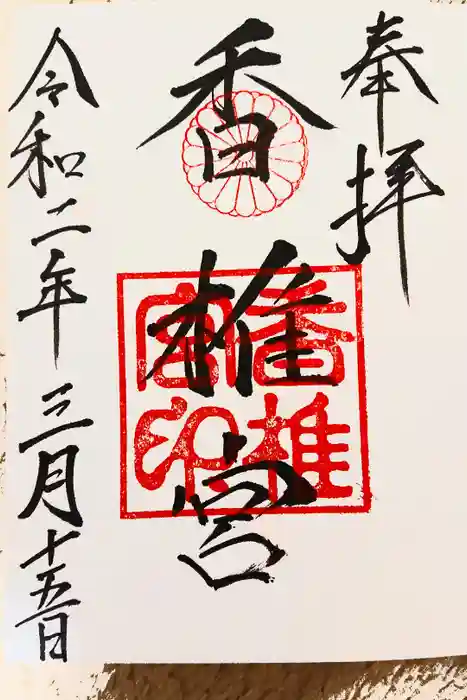 奉拝
香椎宮
香椎宮印
令和二年三月十五日